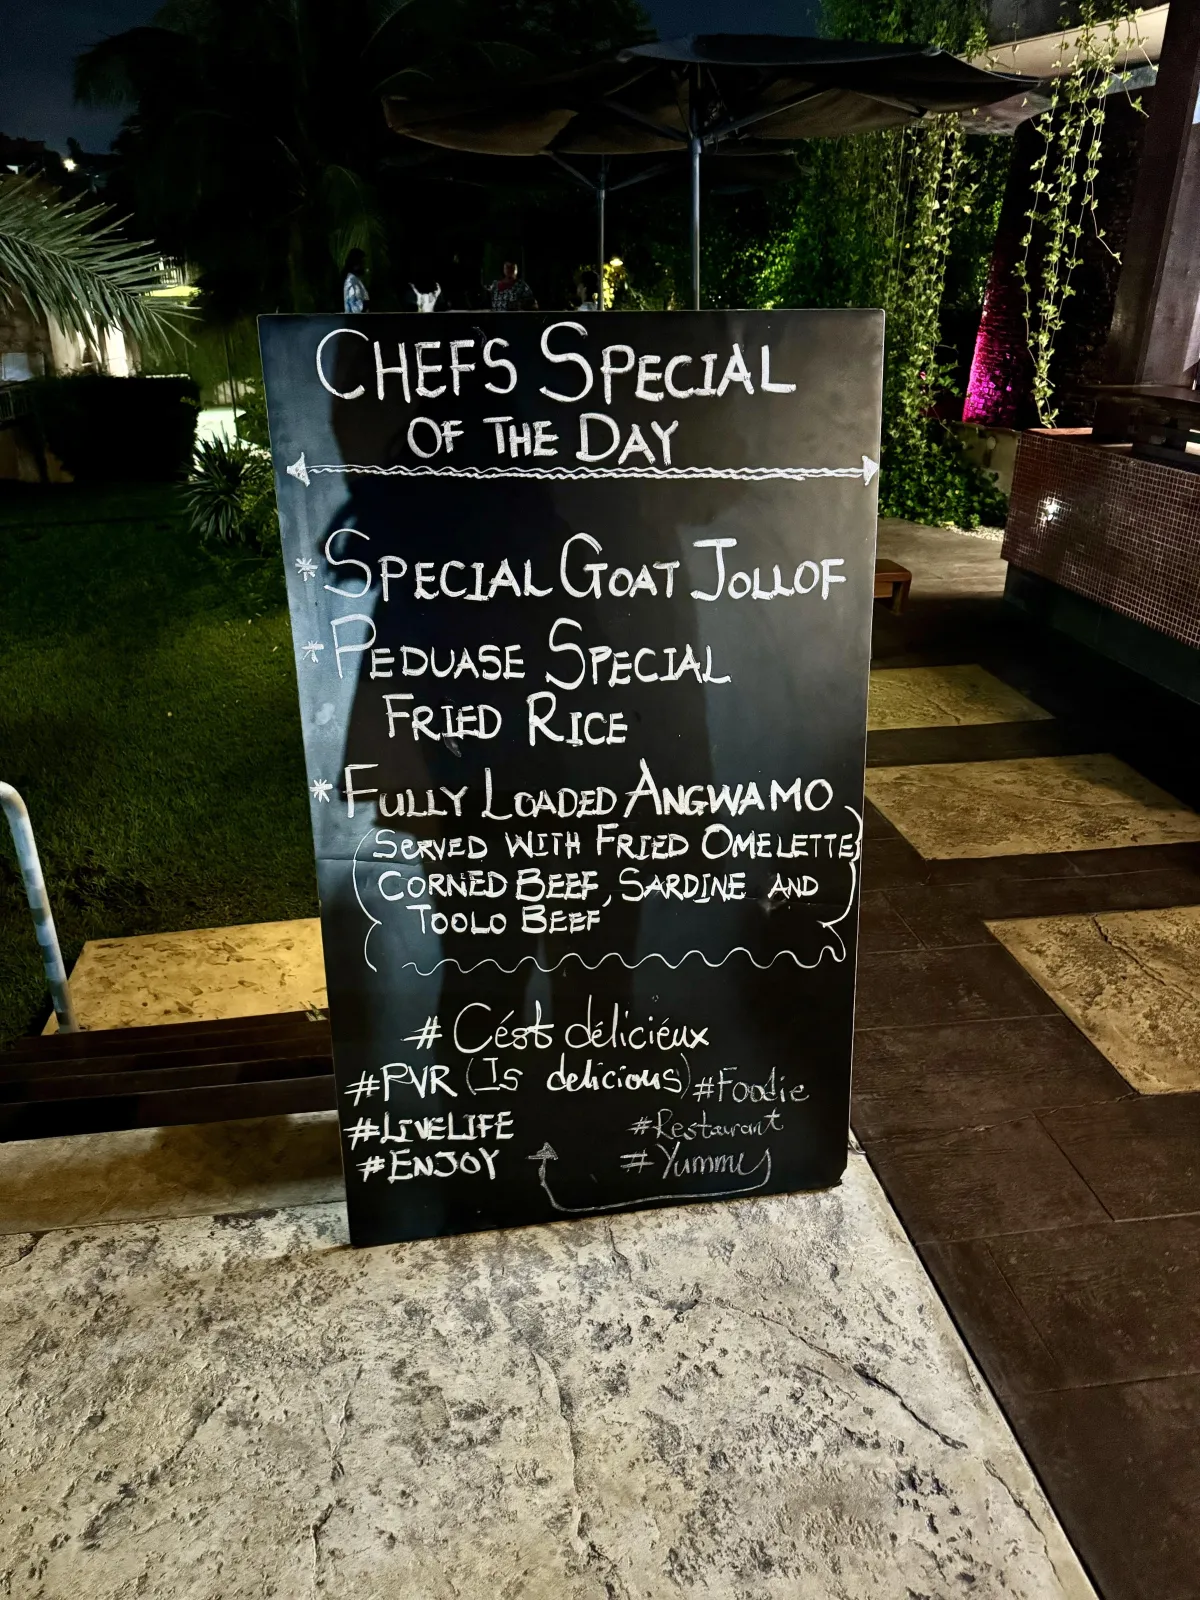 CHEFS SPECIAL
OF THE DAY
* SPECIAL GOAT JOLLOF
* PEDUASE SPECIAL
FRIED RICE
* FULLY LOADED ANGWAMO
(SERVED WITH FRIED OMELETTE
CORNED BEEF, SARDINE AND
TOOLO BEEF)
# Cést déliciéux
#PVR (Is delicious) #Foodie
#LIVELIFE #Restaurant
#ENJOY #Yummy